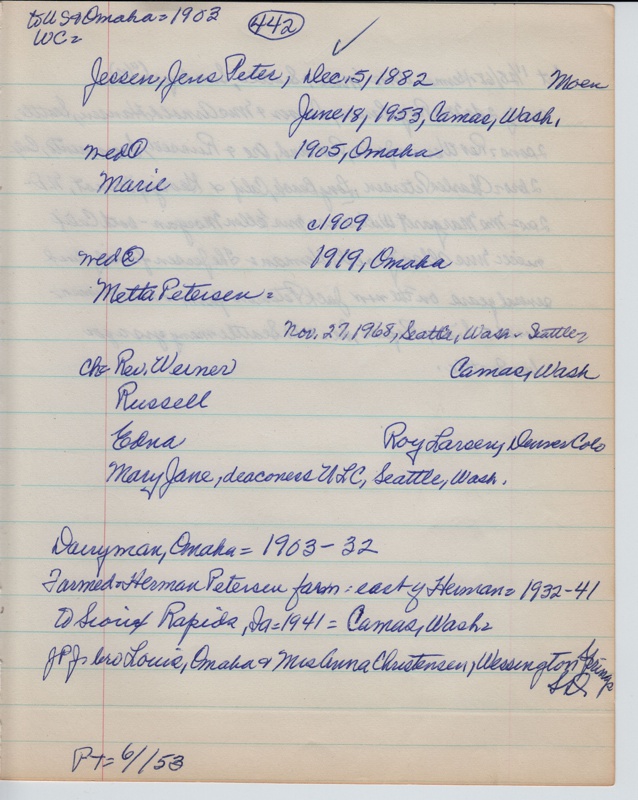 to US & Omaha = 1903
442
WC =
Jessen, Jens Peter, Dec. 5, 1882 Moen
June 18, 1953, Camas, Wash.
wed ① 1905, Omaha
Marie
c1909
wed ② 1919, Omaha
Metta Petersen =
Nov. 27, 1968, Seattle, Wash - Seattle
ch = Rev. Werner Camas, Wash
Russell
Edna Roy Larsen, Denver Colo
Mary Jane, deaconess ULC, Seattle, Wash.
Dairyman, Omaha = 1903-32
Farmed = Herman Petersen farm = east of Herman = 1932-41
to Sioux Rapids, Ia = 1941 = Camas, Wash =
JPJs bro Louis, Omaha & Mrs Anna Christensen, Wessington Springs
S.D.
Pt = 6/ /53